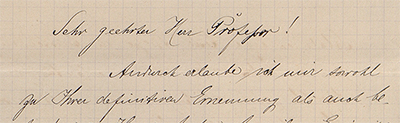 Sehr geehrter Herr Profeſsor!
Andurch erlaube ich mir sowohl
zu Ihrer definitiven Ernennung als auch be-